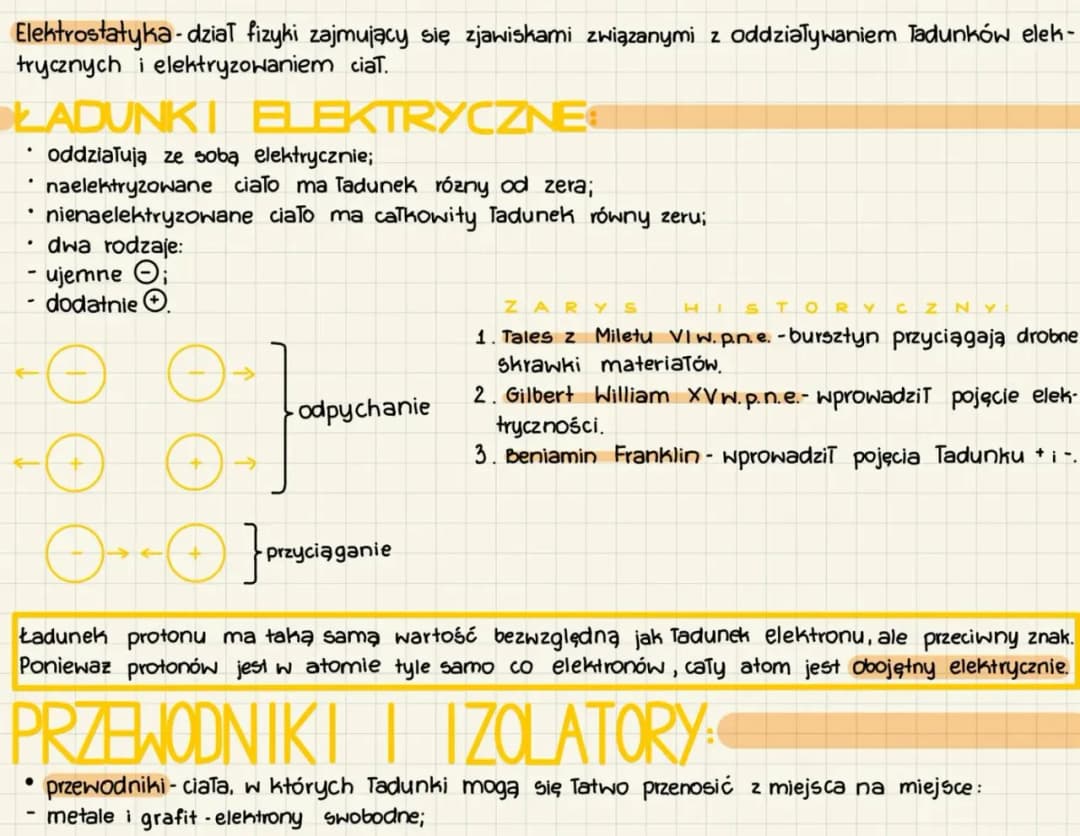 Elektrostatyka - dział fizyki zajmujący się zjawiskami związanymi z oddziaływaniem ładunków elek-
trycznych i elektryzowaniem ciał.
ŁADUNKI ELEKTRYCZNE:
• oddziałują ze sobą elektrycznie;
• naelektryzowane ciało ma ładunek różny od zera;
• nienaelektryzowane ciało ma całkowity ładunek równy zeru;
• dwa rodzaje:
- ujemne ⊖;
- dodatnie ⊕.
ZARYS HISTORYCZNY:
1. Tales z Miletu VI w. p.n.e. - bursztyn przyciągają drobne
skrawki materiałów.
2. Gilbert William XV w. p.n.e. - wprowadził pojęcie elek-
tryczności.
3. Beniamin Franklin - wprowadził pojęcia ładunku + i -.
← - - →
← + + →
odpychanie
- → ← +
przyciąganie
Ładunek protonu ma taką samą wartość bezwzględną jak ładunek elektronu, ale przeciwny znak.
Ponieważ protonów jest w atomie tyle samo co elektronów, cały atom jest obojętny elektrycznie.
PRZEWODNIKI I IZOLATORY:
• przewodniki - ciała, w których ładunki mogą się łatwo przenosić z miejsca na miejsce:
- metale i grafit - elektrony swobodne;